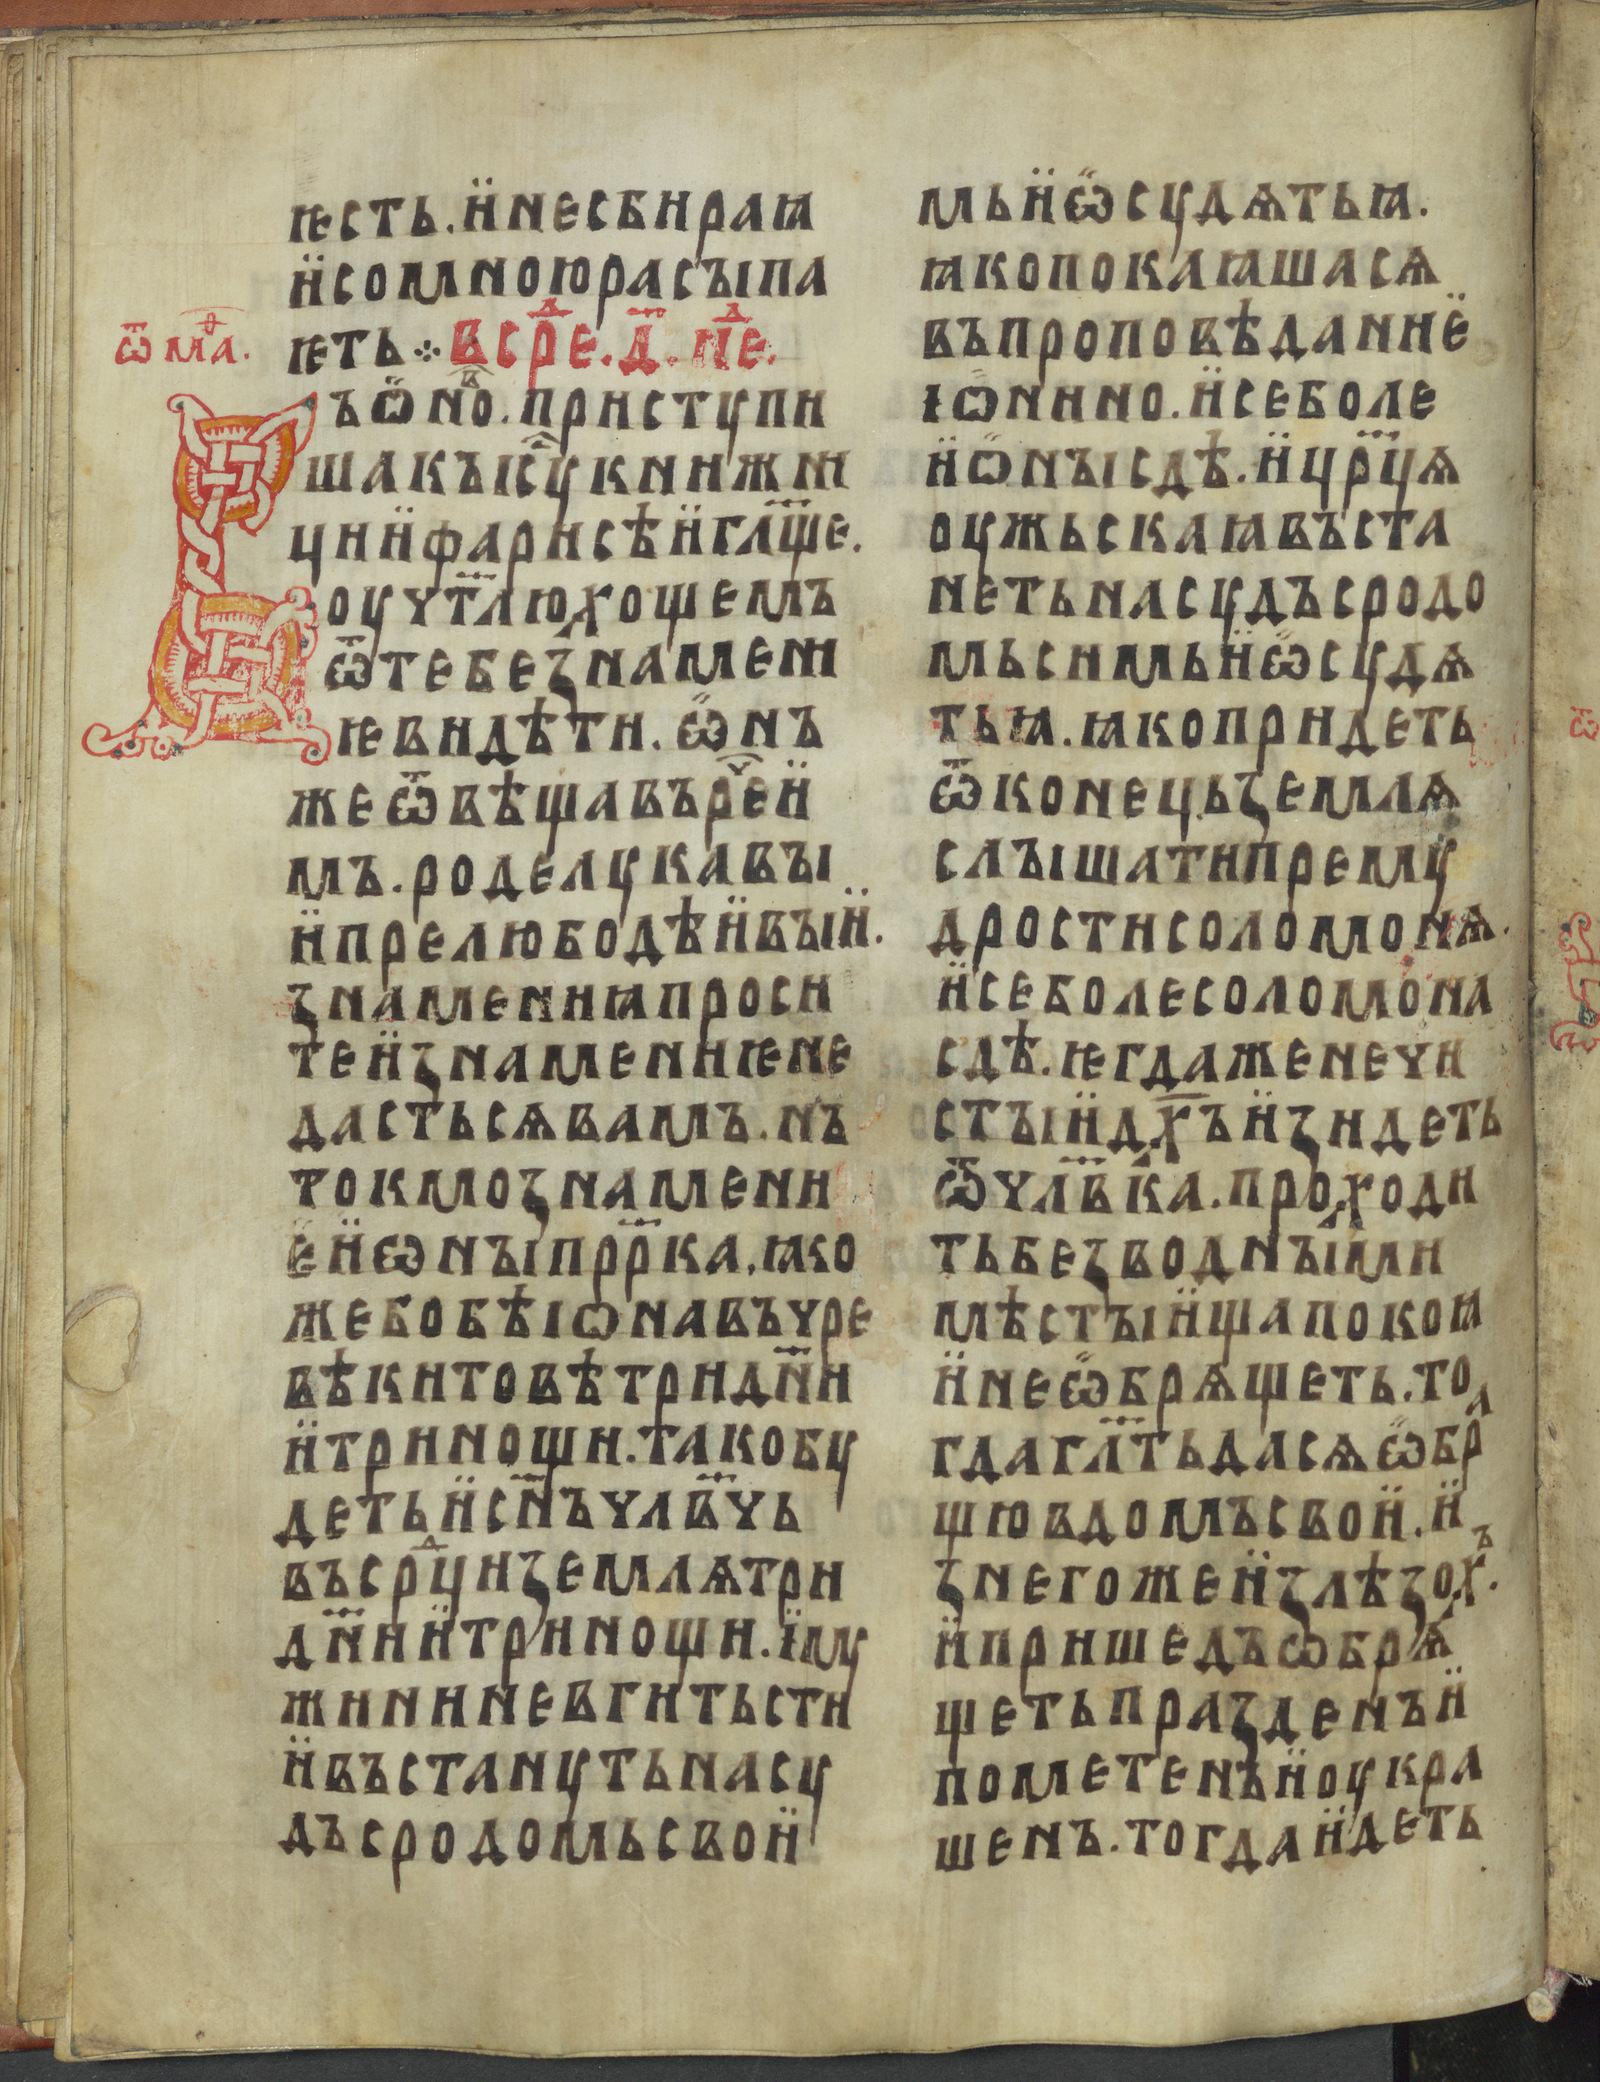 ѥсть. и҅не сбираꙗ
и҅со мною расъıпа
ѿ маⷴ.
ѥть ⁘ в срⷣе. д҃. нⷣе.
Въ ѡ҅нⷪ. приступи
ша къ іс҃у книжни
ци и҅ фарисѣи҅ гл҃ще.
оучт҃лю хощемъ
ѿ тебе знамени
ѥ видѣти. ѡ҅нъ
же ѿвѣща въ рⷱе и҅
мъ. роде лукавъı
и҅ прелюбодѣи҅въıи҅.
знамениꙗ проси
те и҅ знамениѥ не
дасть сѧ вамъ. нъ
токмо знамени
е҅ и҅ѡнъı прр҃ка, ꙗко
же бо бѣ іѡна въ чре
вѣ китовѣ три дн҃и
и҅ три нощи. тако бу
деть и҅ сн҃ъ члв҃чь
въ срⷣци землѧ три
дн҃и и҅ три нощи. і҅му
жи ниневгитьсти
и҅ въстануть на су
дъ с родомь свои҅
мь и҅ ѡ҅судѧть ꙗ.
ꙗко покаꙗша сѧ
въ проповѣданиѥ҅
іѡнино. и҅ се боле
и҅ѡнъı сдѣ. и҅ цр҃цѧ
оужьскаꙗ въста
неть на судъ с родо
мь симь и҅ ѡ҅судѧ
ть ꙗ. ꙗко придеть
ѿ конець землѧ
слъıшати прему
дрости соломонѧ.
и҅ се боле соломона
сдѣ. ѥгда же нечи
стъıи҅ дх҃ъ и҅зидеть
ѿ члв҃ка. проходи
ть безводнъıми
мѣстъı и҅ща покоꙗ
и҅ не ѡ҅брѧщеть. тоⷧ
гда гл҃ть да сѧ ѡ҅бр
щю в домъ свои҅. и҅
знегоже и҅злѣзохъ.
и҅ пришедъ ѡбрѧ
щеть празденъ и҅
пометенъ и҅ оукра
шенъ. тогда и҅деть